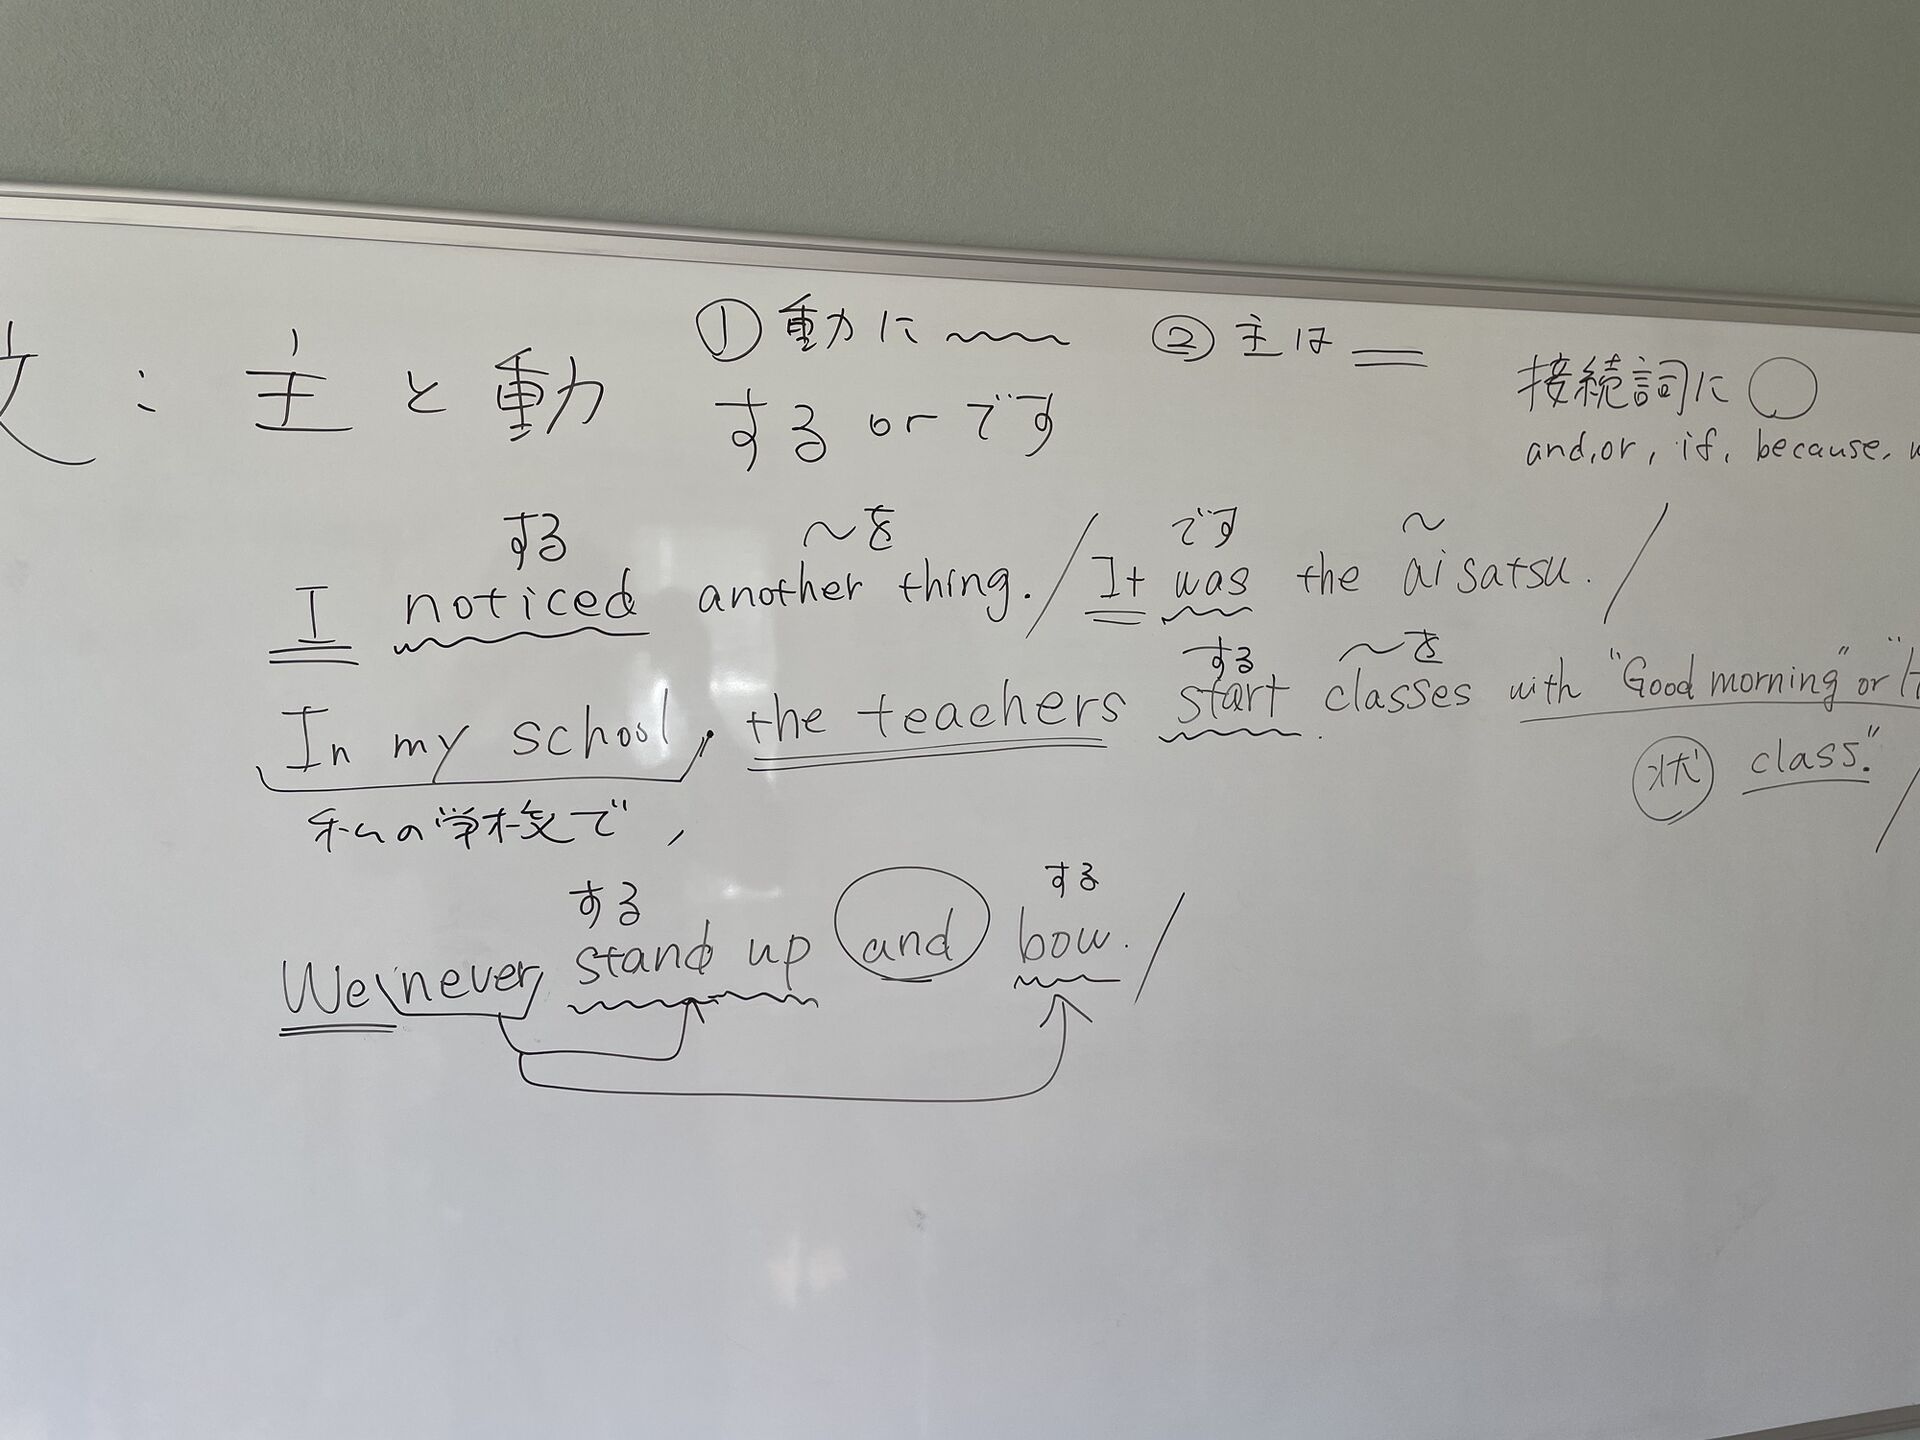 文：主と動
①動に〜〜 ②主は＝
するorです
接続詞に○
and, or, if, because,
する 〜を です 〜
I noticed another thing. / It was the aisatsu. /
する 〜を
In my school, the teachers start classes with "Good morning" or "
私の学校で, 状 class."
する する
We never stand up and bow. /